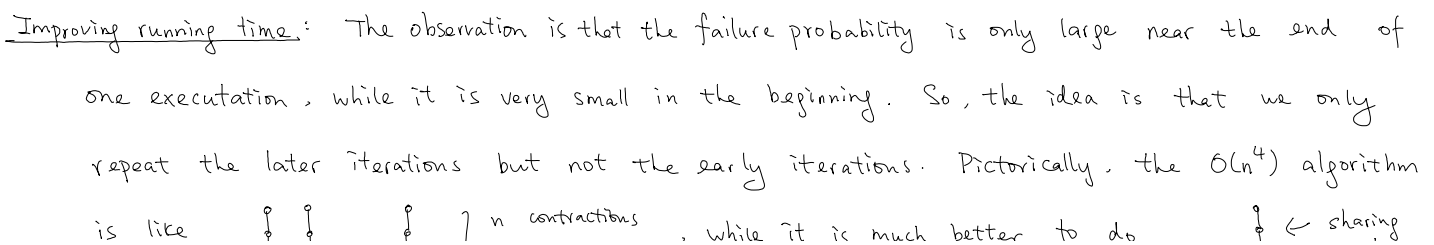 Improving running time: The observation is that the failure probability is only large near the end of
one executation, while it is very small in the beginning. So, the idea is that we only
repeat the later iterations but not the early iterations. Pictorically, the O(n⁴) algorithm
is like n contractions, while it is much better to do ← sharing